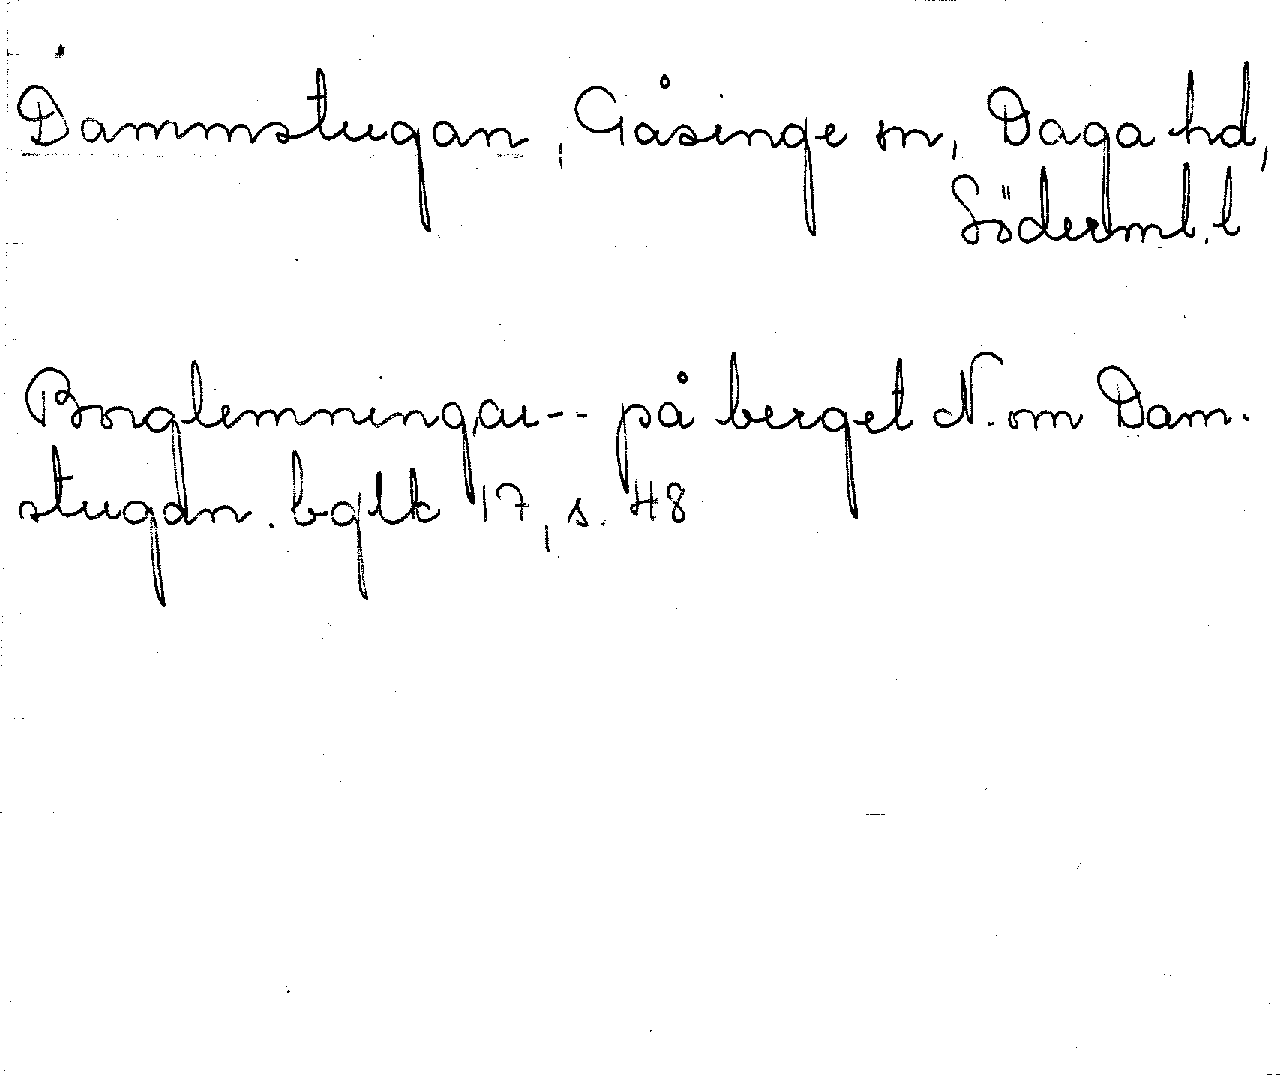 Dammstugan, Gåsinge sn, Daga hd,
Söderml. l
Borglemningar -- på berget N. om Dam-
stugan. bglk 17, s. 48